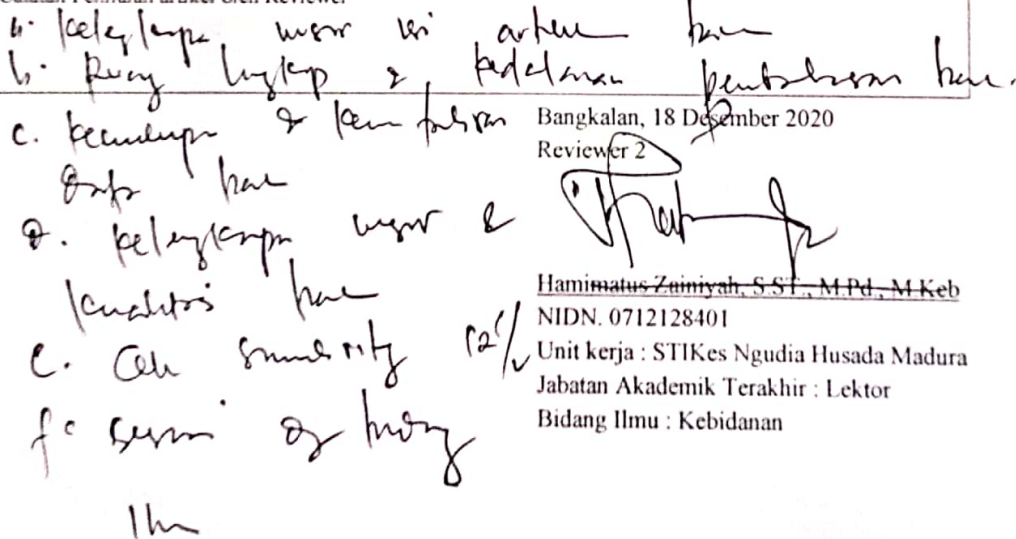 Catatan Penilaian artikel oleh Reviewer
a. Kelengkapan unsur isi artikel baik
b. Ruang lingkup & kedalaman pembahasan baik.
c. Kecukupan & kemutahiran
data baik
d. Kelengkapan unsur &
kualitas baik
e. Cek similarity 12%
f. sesuai dg bidang
Ilmu
Bangkalan, 18 Desember 2020
Reviewer 2
Hamimatus Zainiyah, S.ST., M.Pd., M.Keb
NIDN. 0712128401
Unit kerja : STIKes Ngudia Husada Madura
Jabatan Akademik Terakhir : Lektor
Bidang Ilmu : Kebidanan